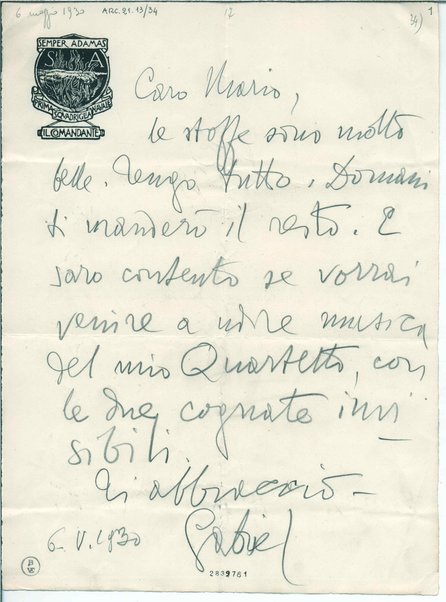 6 maggio 1930 ARC. 21. 13/34 17 34) 1
SEMPER ADAMAS
S A
PRIMA SQVADRIGLIA NAVALE
IL COMANDANTE
Caro Mario,
le stoffe sono molto
belle. Tengo tutto. Domani
ti manderò il resto. E
sarò contento se vorrai
venire a udire musica
del mio Quartetto, con
le due cognate invi
sibili.
Ti abbraccio –
6. V. 1930 Gabriel
2839761